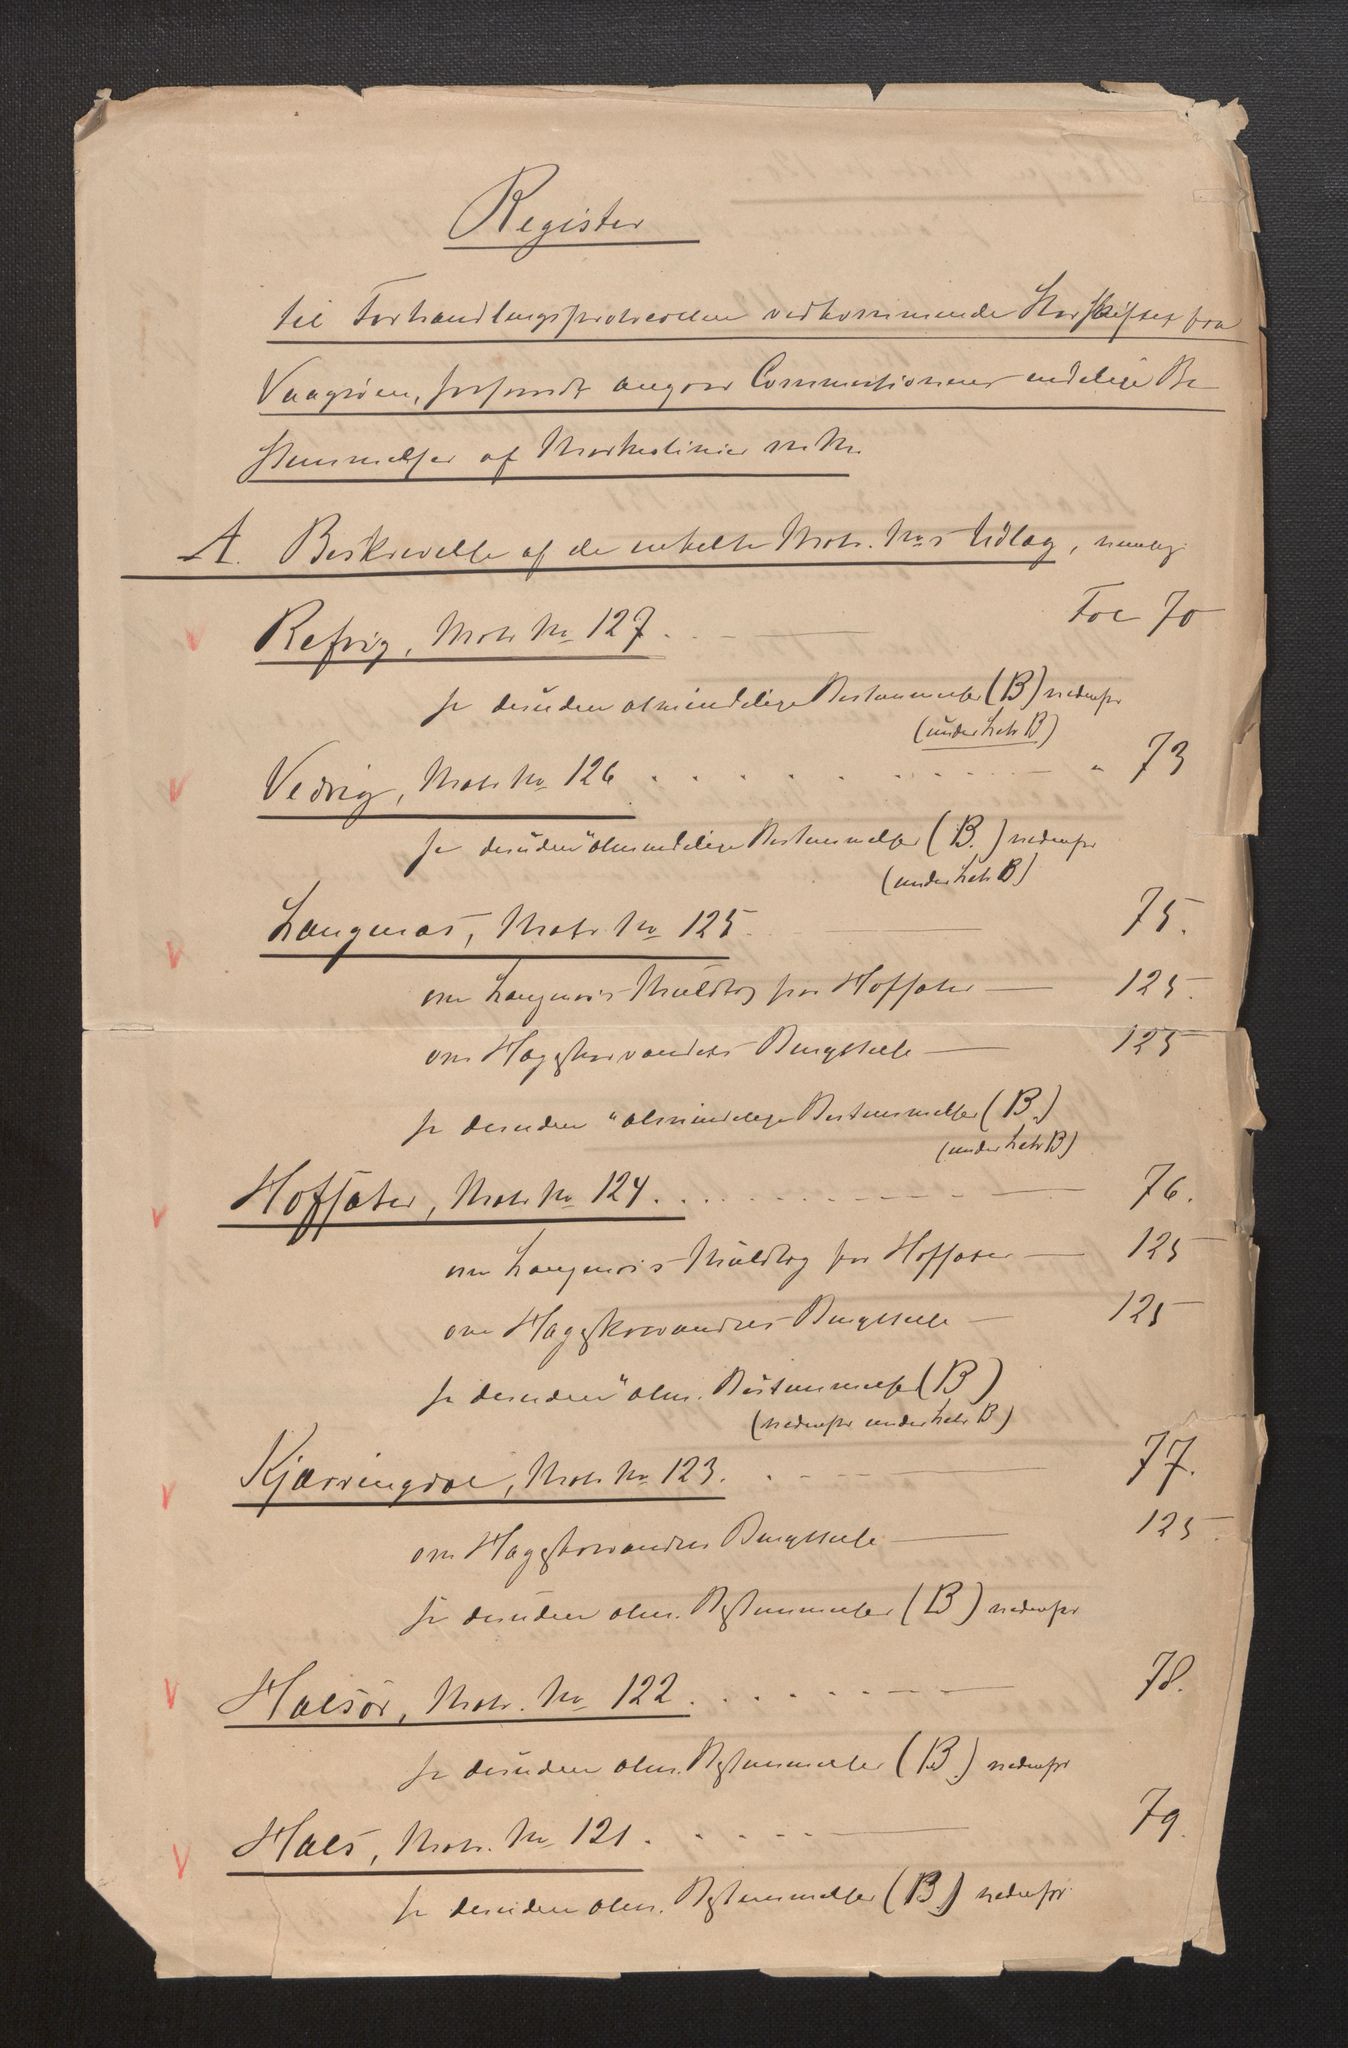 Register
til Forhandlingsprotocollen vedkommende Udskiftet fra
Vaagsøen, forsaavidt angaar Commissionens endelige Be
stemmelser af Merkelinier m.m.
A. Beskrivelse af de enkelte Matr. No.s Udlæg, nemlig
V Refvig, Matr No 127. . - Fol 70
se desuden almindelige Bestemmelser (B) nedenfor
(under Litr B)
V Vedvig, Matr No 126 . . . . . . . . . . " 73
se desuden "almindelige Bestemmelser (B.) nedenfor
(under Litr B)
V Langenæs, Matr No 125. 75.
om Langenæs's Muldtag paa Hofsæter 125.
om Hagskarvandets Bugthele 125
se desuden "almindelige Bestemmelser (B.)
(under Litr B)
V Hofsæter, Matr No 124. . . . . . . . . 76.
om Langenæs's Muldtag paa Hofsæter 125
om Hagskarvandets 125
se desuden "alm. Bestemmelser (B)
(nedenfor under Litr B)
V Kjærringdal, Matr No 123. . - - - 77.
om Hagskarvandets 125.
se desuden alm. Bestemmelser (B) nedenfor
V Halsør, Matr. No 122. . . . . . . - - 78.
se desuden alm. Bestemmelser (B.) nedenfor
V Hals, Matr. No 121. . . . . . 79.
se desuden alm. Bestemmelser (B.) nedenfor